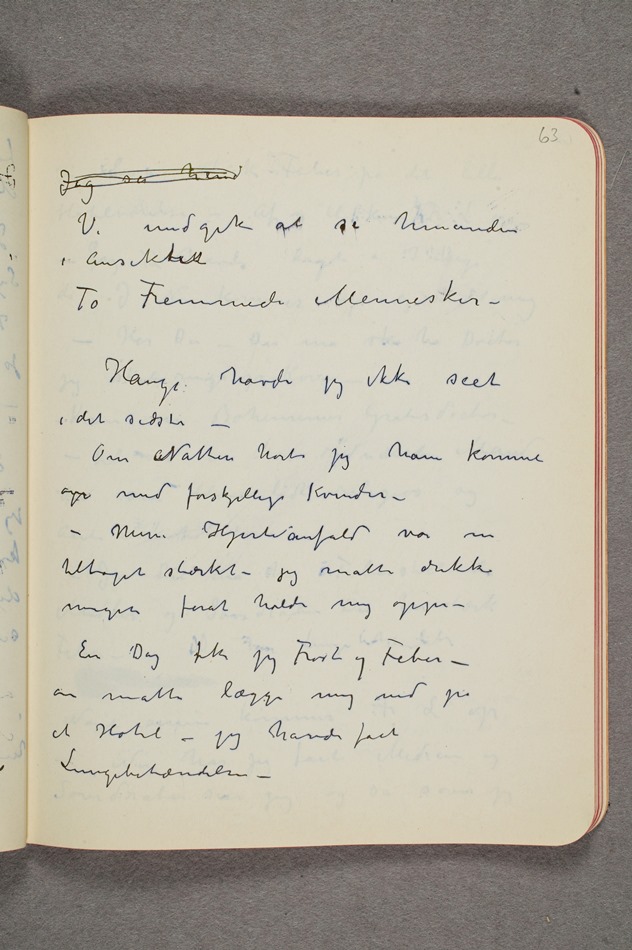 63
Jeg så hend
Vi undgik at se hinanden
i ansiktet
To Fremmede Mennesker –
Hauge havde jeg ikke seet
i det sidste –
Om Natten hørte jeg ham komme
op med forskjellige Kvinder –
– Mine Hjerteanfald var nu
tiltaget stærkt – jeg måtte drikke
meget forat holde mig oppe –
En Dag fik jeg Frost og Feber –
måtte lægge mig ned på
et Hotel – jeg havde fåt
Lungebetændelse –